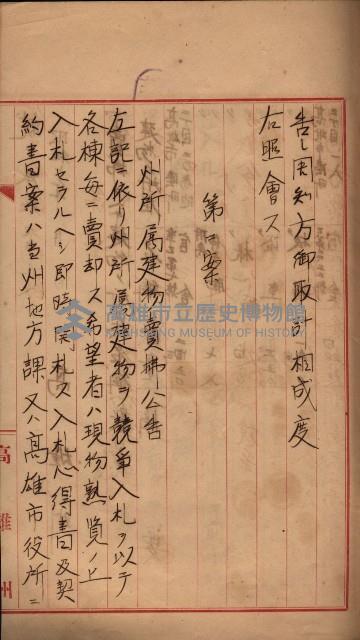 告シ周知方御取計相成度
右照會ス
第二案
州所属建物賣拂公告
左記ニ依リ州所属建物ヲ競争入札ヲ以テ
各棟毎ニ賣却ス希望者ハ現物熟覧ノ上
入札セラルヘシ即時開札ス入札心得書及契
約書案ハ当州地方課又ハ高雄市役所ニ
高雄州
高雄市立歷史博物館
KAOHSIUNG MUSEUM OF HISTORY